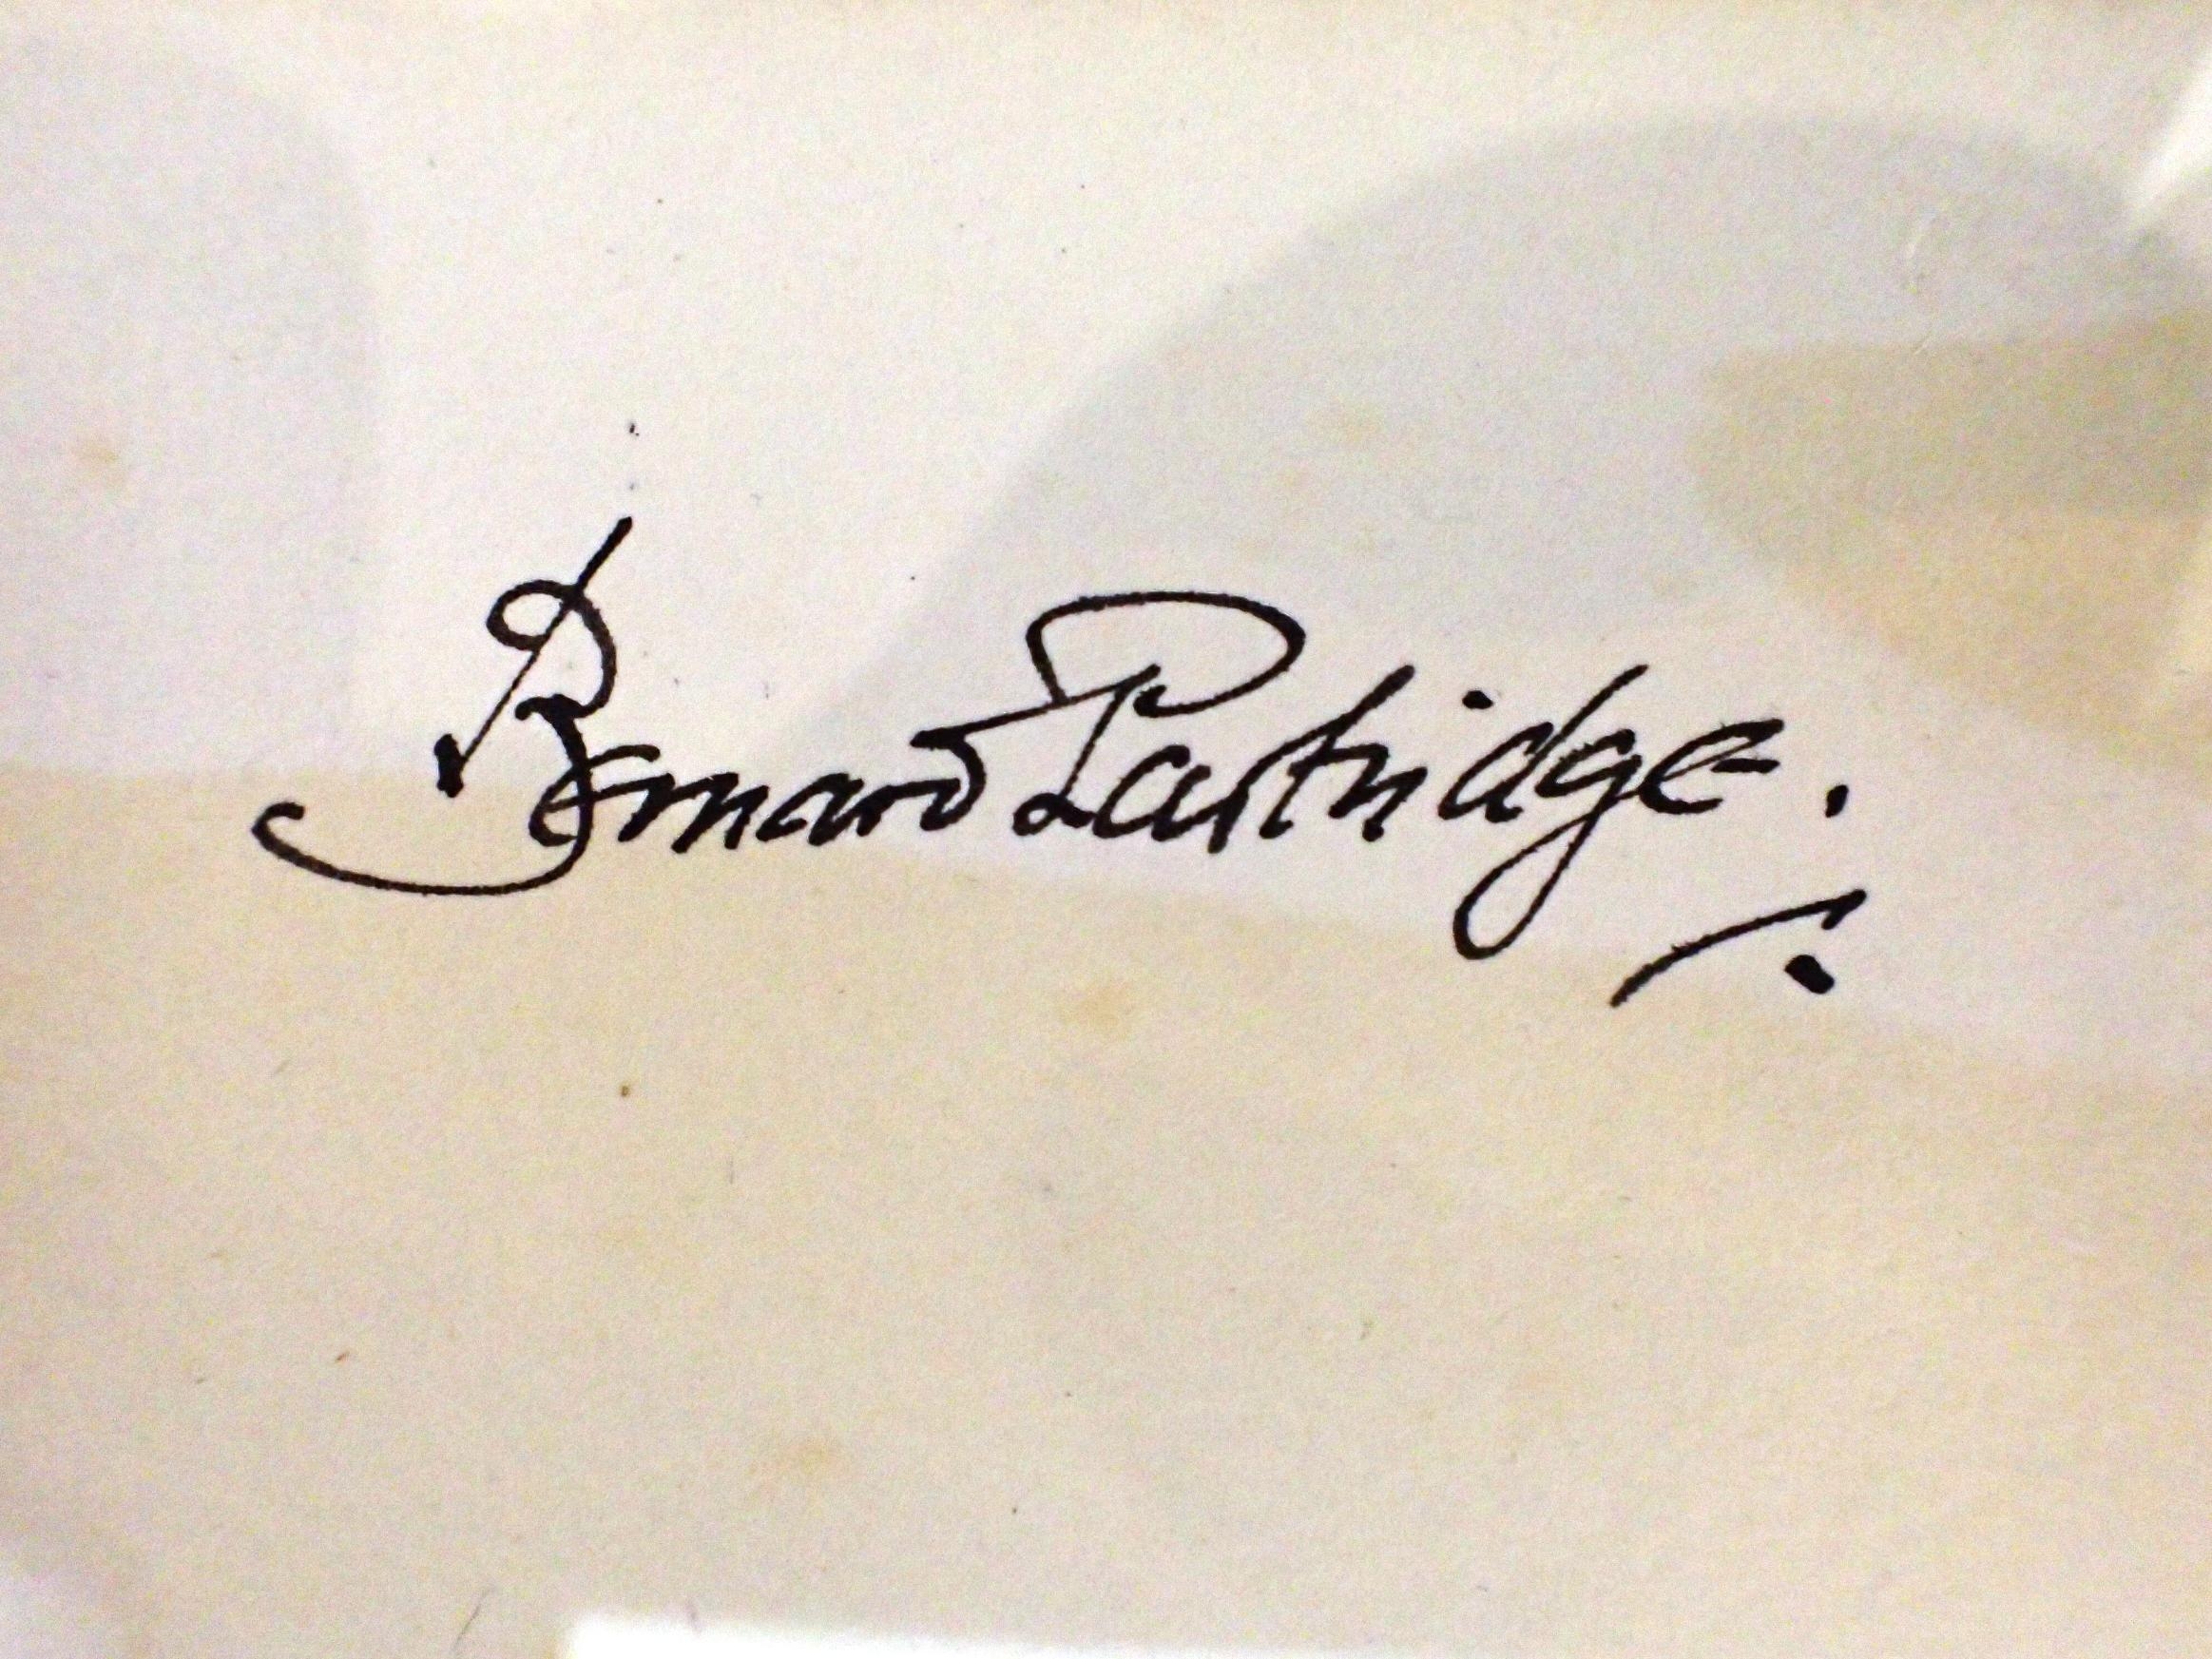 Bernard Partridge.